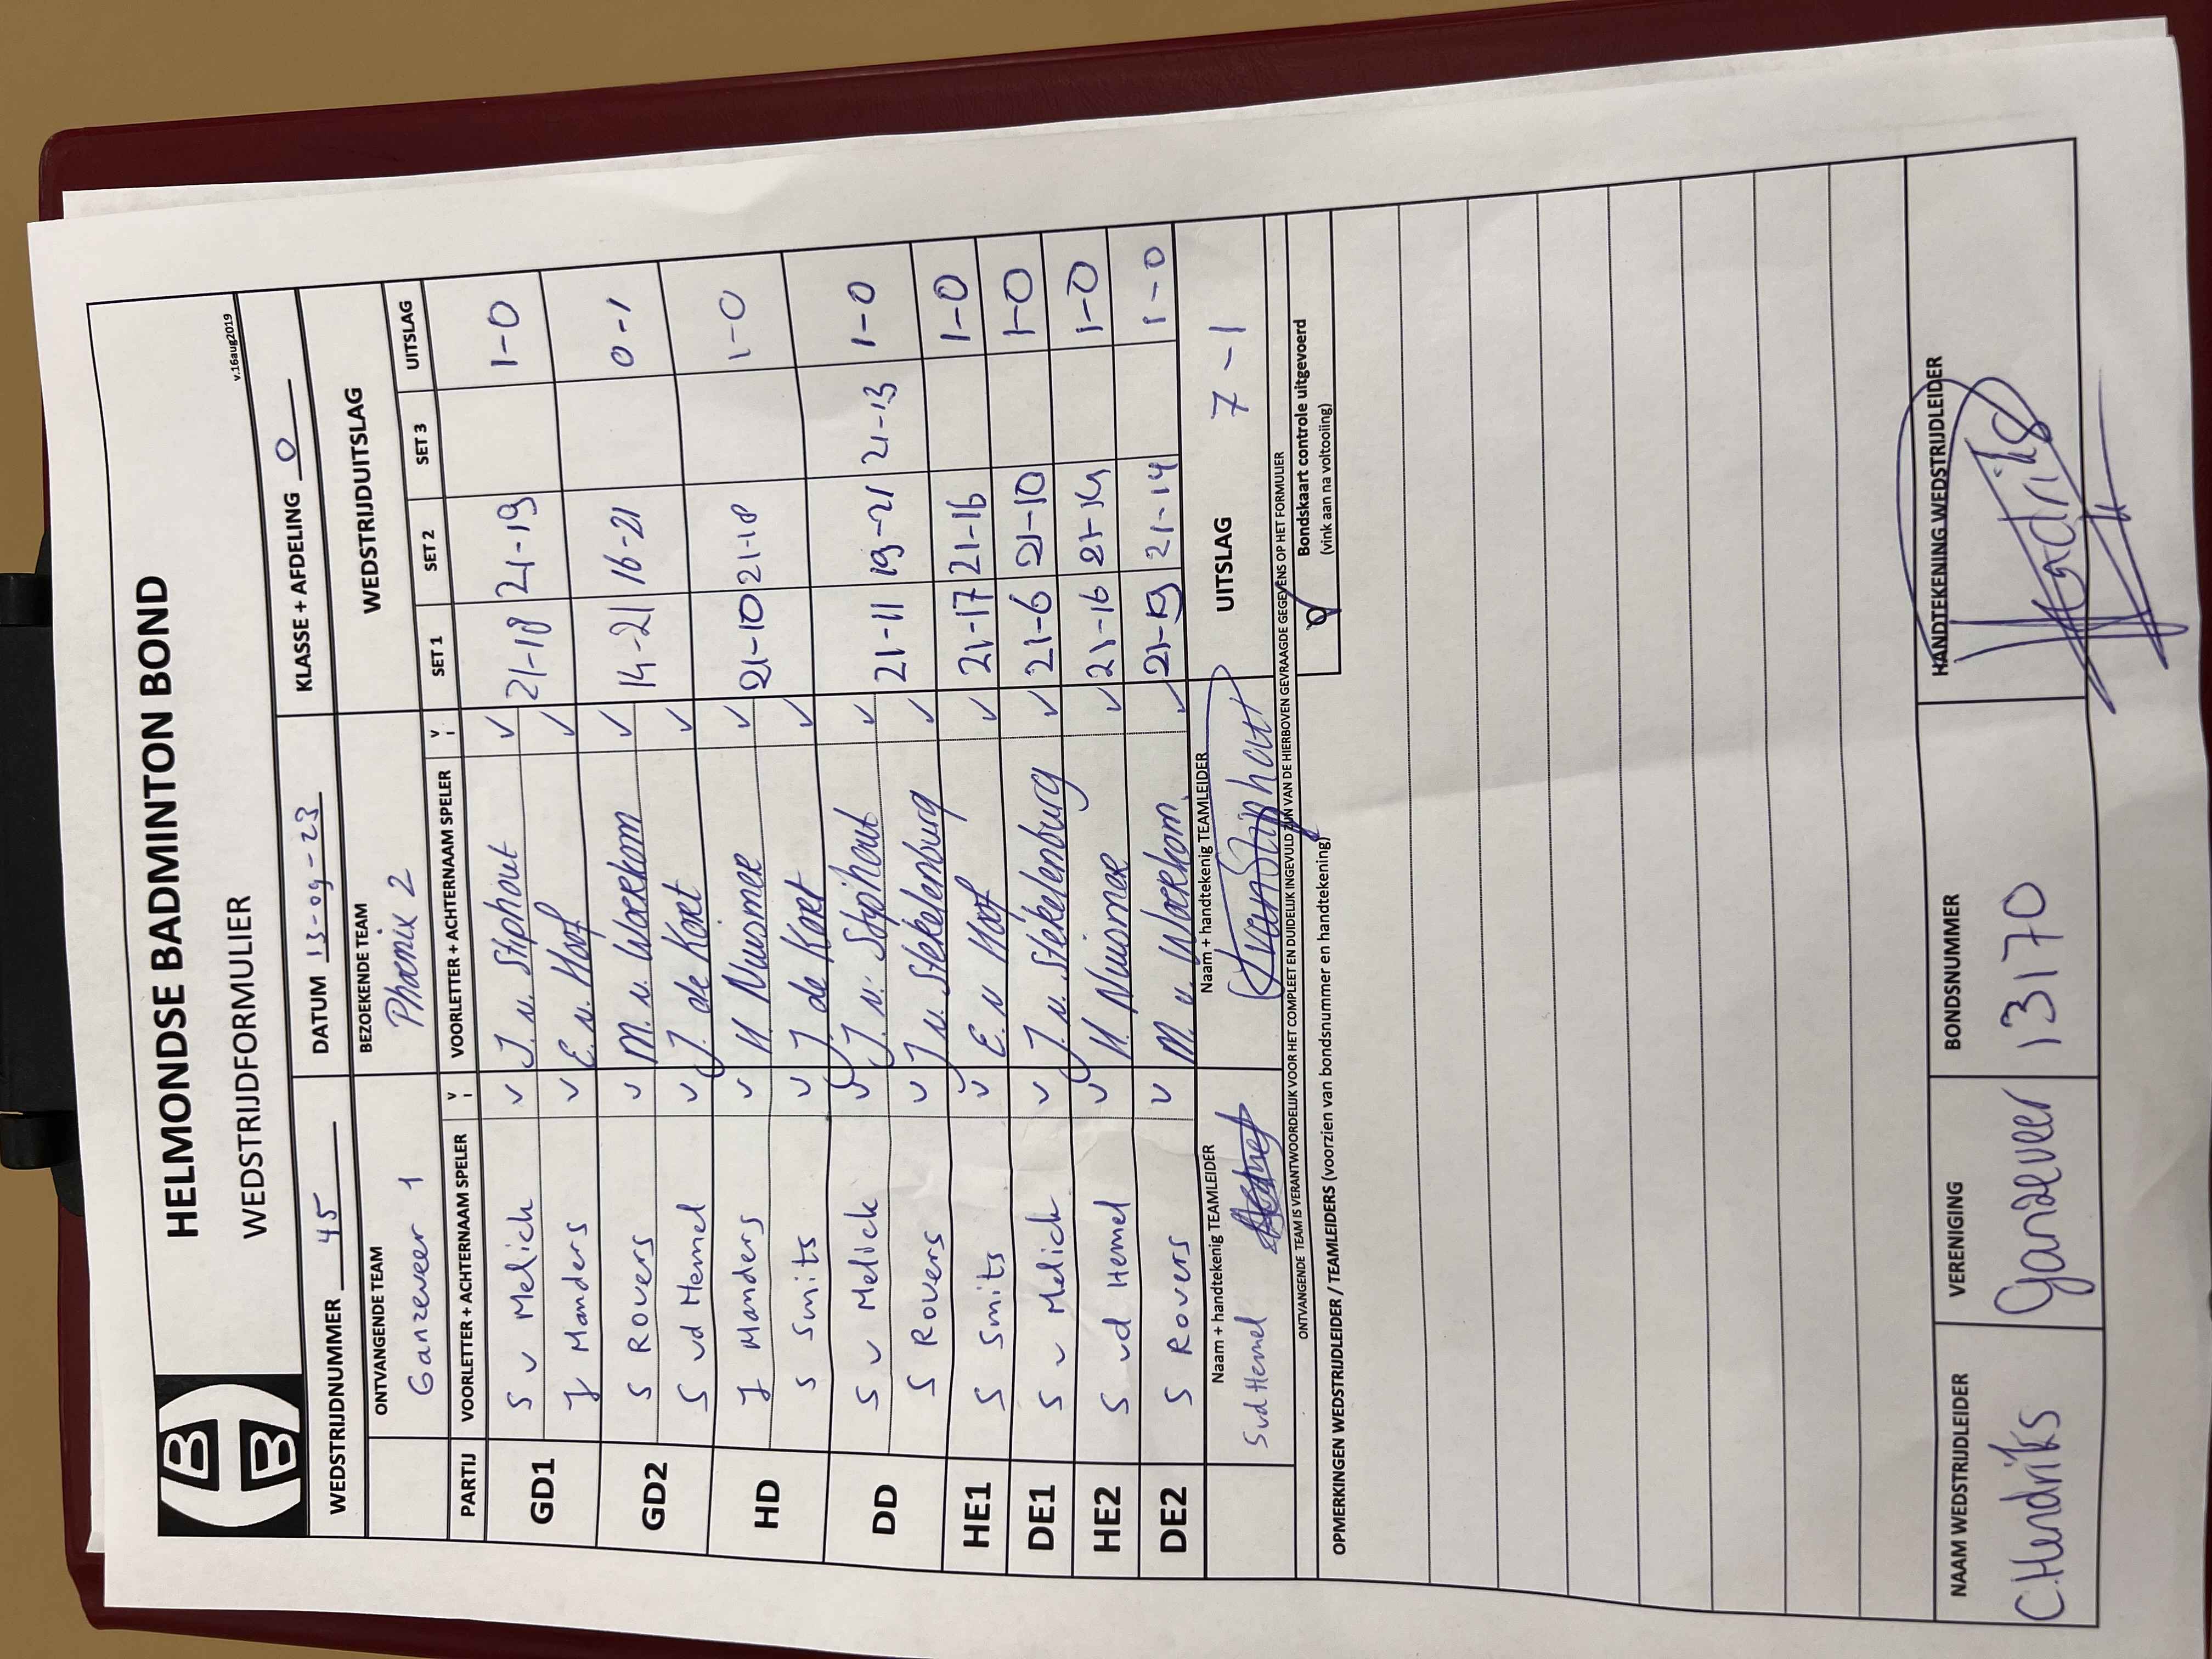 HELMONDSE BADMINTON BOND
WEDSTRIJDFORMULIER
v.16aug2019
WEDSTRIJDNUMMER 45 DATUM 13-09-23 KLASSE + AFDELING 0
ONTVANGENDE TEAM BEZOEKENDE TEAM WEDSTRIJDUITSLAG
Ganzeveer 1 Phoenix 2
PARTIJ VOORLETTER + ACHTERNAAM SPELER V VOORLETTER + ACHTERNAAM SPELER V SET 1 SET 2 SET 3 UITSLAG
GD1 S v Melick J. v. Stiphout 21-18 21-19 1-0
J Manders E. v. Hoof
GD2 S Rovers M. v. Woerkom 14-21 16-21 0-1
S vd Hemel J. de Kort
HD J Manders H. Nuismer 21-10 21-18 1-0
S Smits J. de Kort
DD S v Melick J. v. Stiphout 21-11 19-21 21-13 1-0
S Rovers J v. Stekelenburg
HE1 S Smits E. v Hoof 21-17 21-16 1-0
DE1 S v Melick J. v. Stekelenburg 21-6 21-10 1-0
HE2 S vd Hemel H. Nuismer 21-16 21-14 1-0
DE2 S Rovers M. v. Woerkom 21-19 21-14 1-0
Naam + handtekenig TEAMLEIDER Naam + handtekenig TEAMLEIDER UITSLAG 7-1
S vd Hemel
ONTVANGENDE TEAM IS VERANTWOORDELIJK VOOR HET COMPLEET EN DUIDELIJK INGEVULD ZIJN VAN DE HIERBOVEN GEVRAAGDE GEGEVENS OP HET FORMULIER
Bondskaart controle uitgevoerd
(vink aan na voltooiing)
OPMERKINGEN WEDSTRIJDLEIDER / TEAMLEIDERS (voorzien van bondsnummer en handtekening)
NAAM WEDSTRIJDLEIDER VERENIGING BONDSNUMMER HANDTEKENING WEDSTRIJDLEIDER
C.Hendriks Ganzeveer 13170